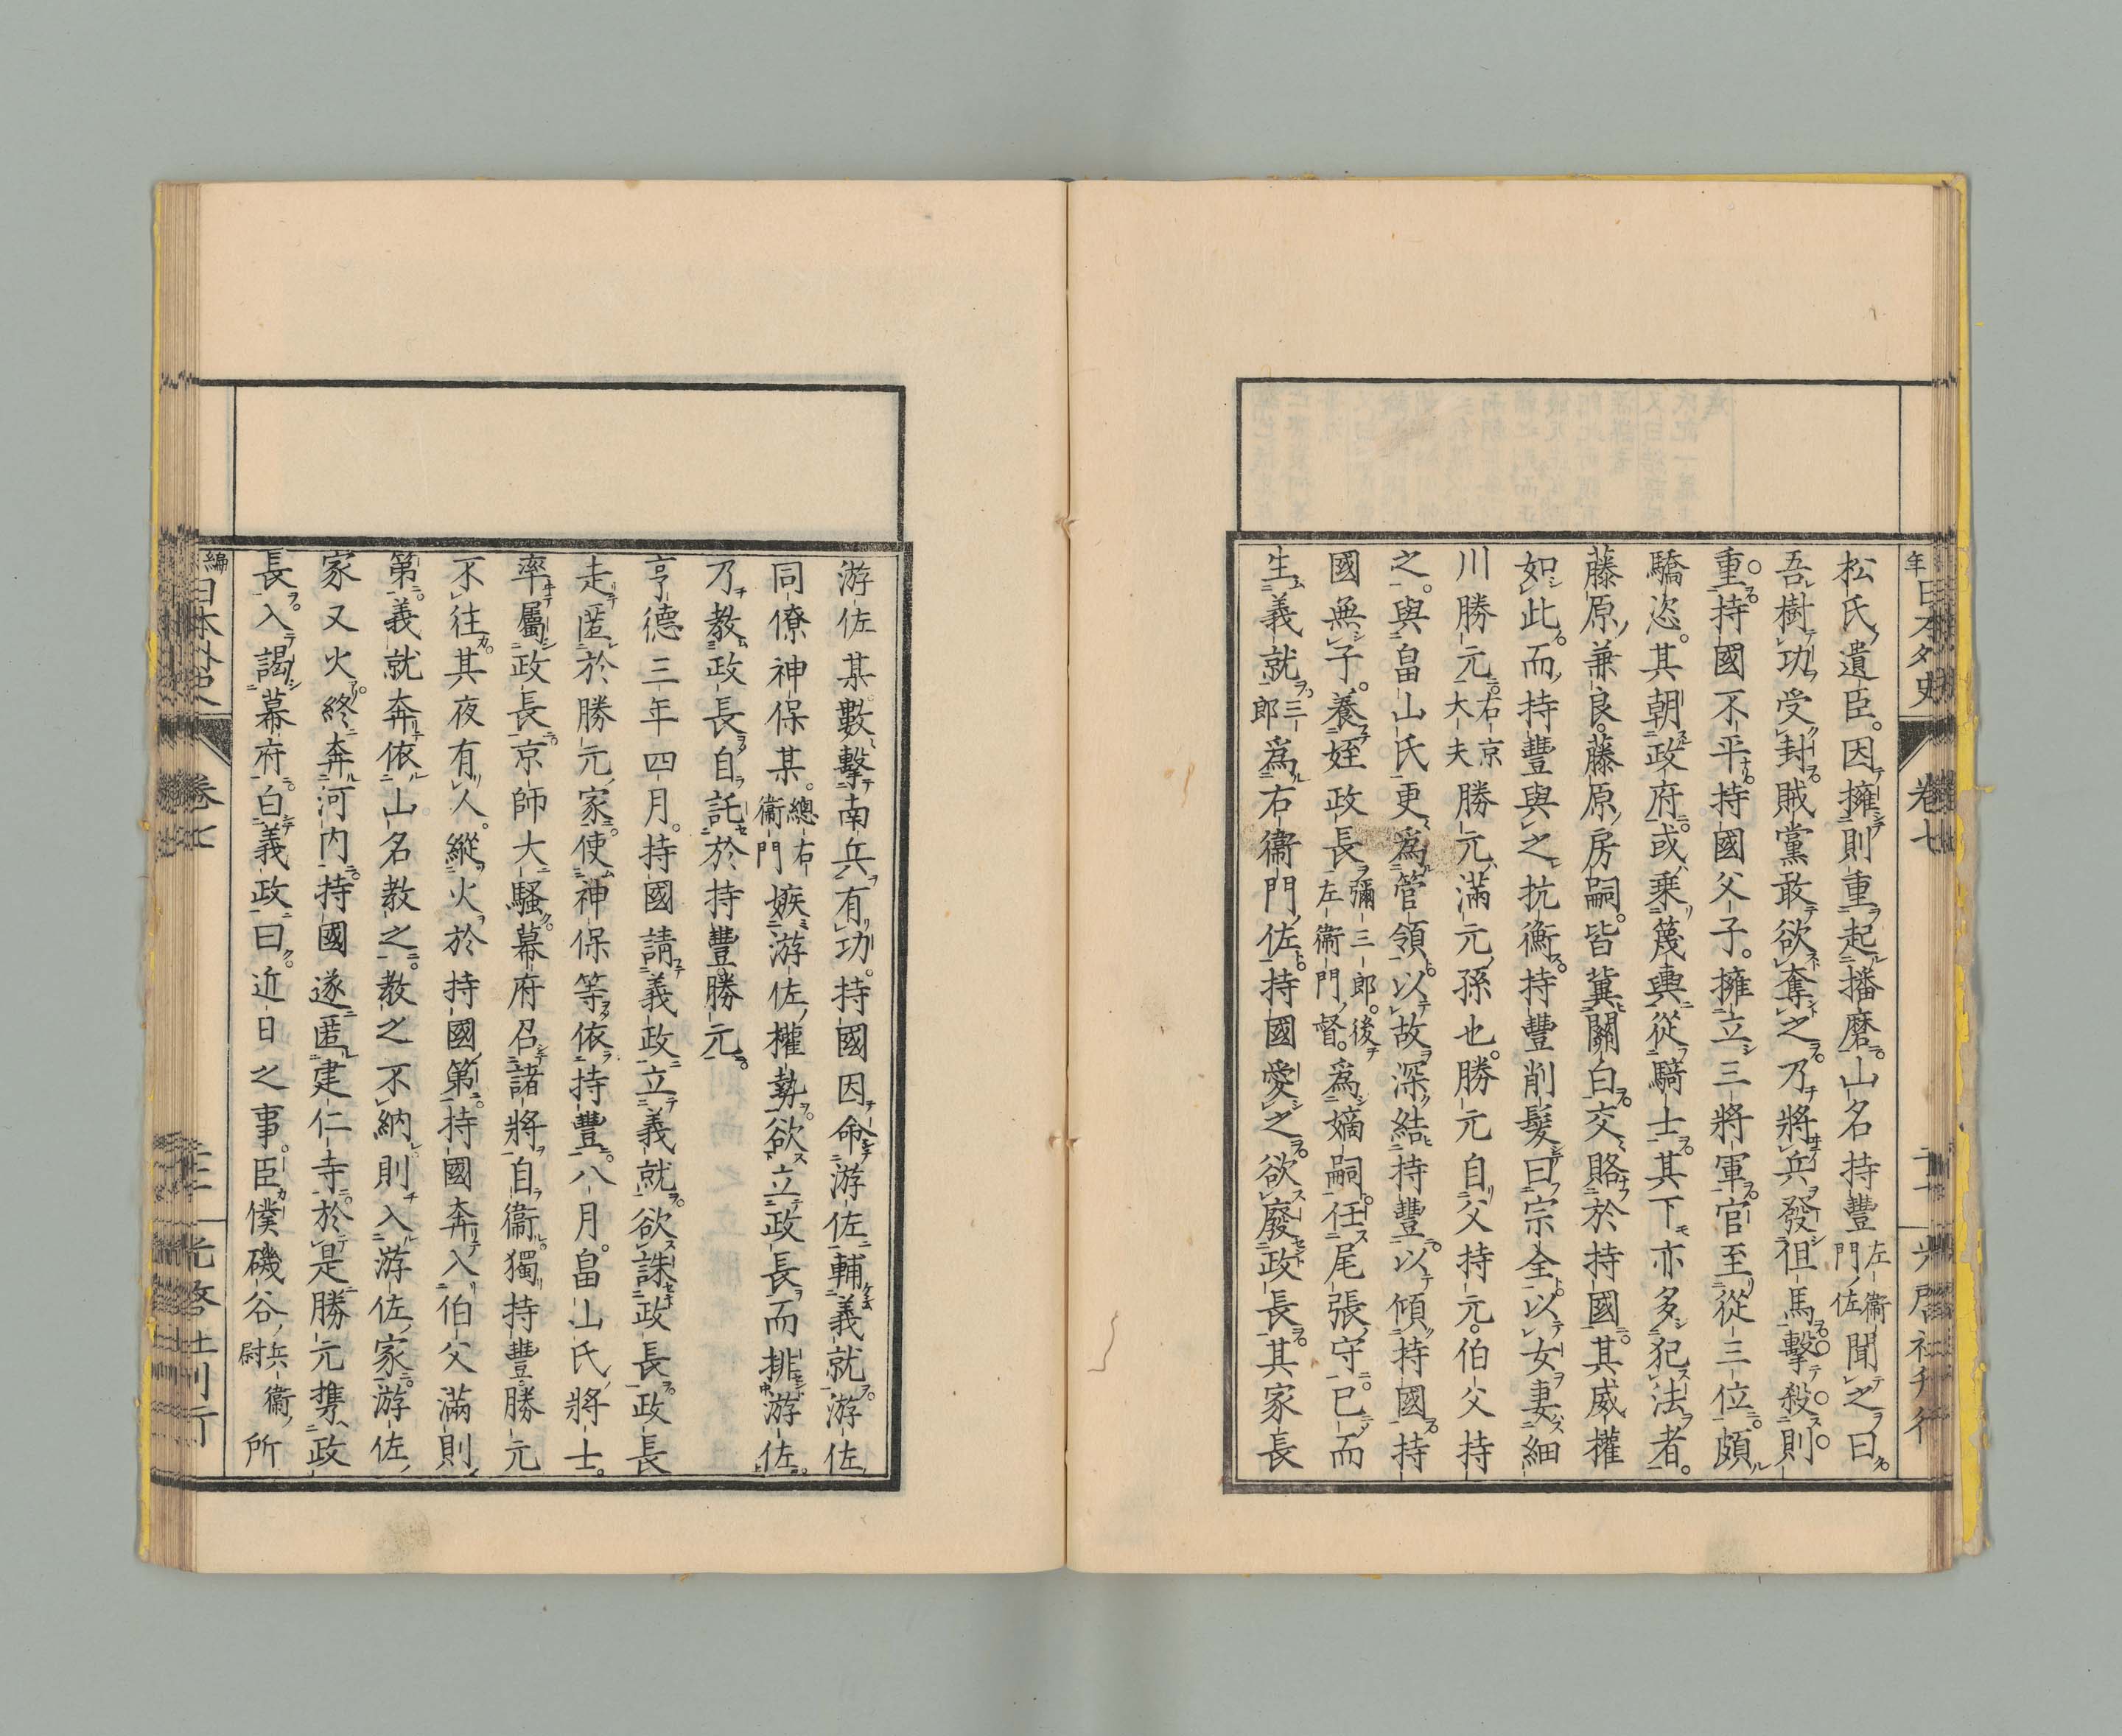 松氏遺臣。因擁則重起播磨。山名持豐左衞門佐聞之曰
吾樹功受封。賊黨敢欲奪之。乃將兵發徂馬擊殺則
重。持國不平。持國父子。擁立三將軍。官至從三位。頗
驕恣。其朝政府。或乘篾輿。從騎士。其下亦多犯法者。
藤原兼良。藤原房嗣。皆冀關白。交賂於持國。其威權
如此。而持豐與之抗衡。持豐削髮曰宗全。以女妻細
川勝元。右京大夫勝元。滿元孫也。勝元自父持元。伯父持
之。與畠山氏更爲管領。以故深結持豐。以傾持國。持
國無子。養姪政長彌三郎。後左衞門督。爲嫡嗣。任尾張守。已而
生義就三郎爲右衞門佐。持國愛之。欲廢政長。其家長
游佐某。數擊南兵有功。持國因命游佐輔義就。游佐
同僚神保某。總右衞門嫉游佐權勢。欲立政長而排游佐。
乃敎政長自託於持豐勝元。
亨德三年四月。持國請義政立義就。欲誅政長。政長
走匿於勝元家。使神保等依持豐。八月。畠山氏將士。
率屬政長。京師大騷。幕府召諸將自衞。獨持豐勝元
不往。其夜有人。縱火於持國第。持國奔入伯父滿則
第。義就奔依山名敎之。敎之不納。則入游佐家。游佐
家又火。終奔河内。持國遂匿建仁寺。於是勝元攜政
長。入謁幕府。白義政曰。近日之事。臣僕磯谷兵衞尉所
年 日本外史 卷七
編 日本外史 卷七 光啓社刊行